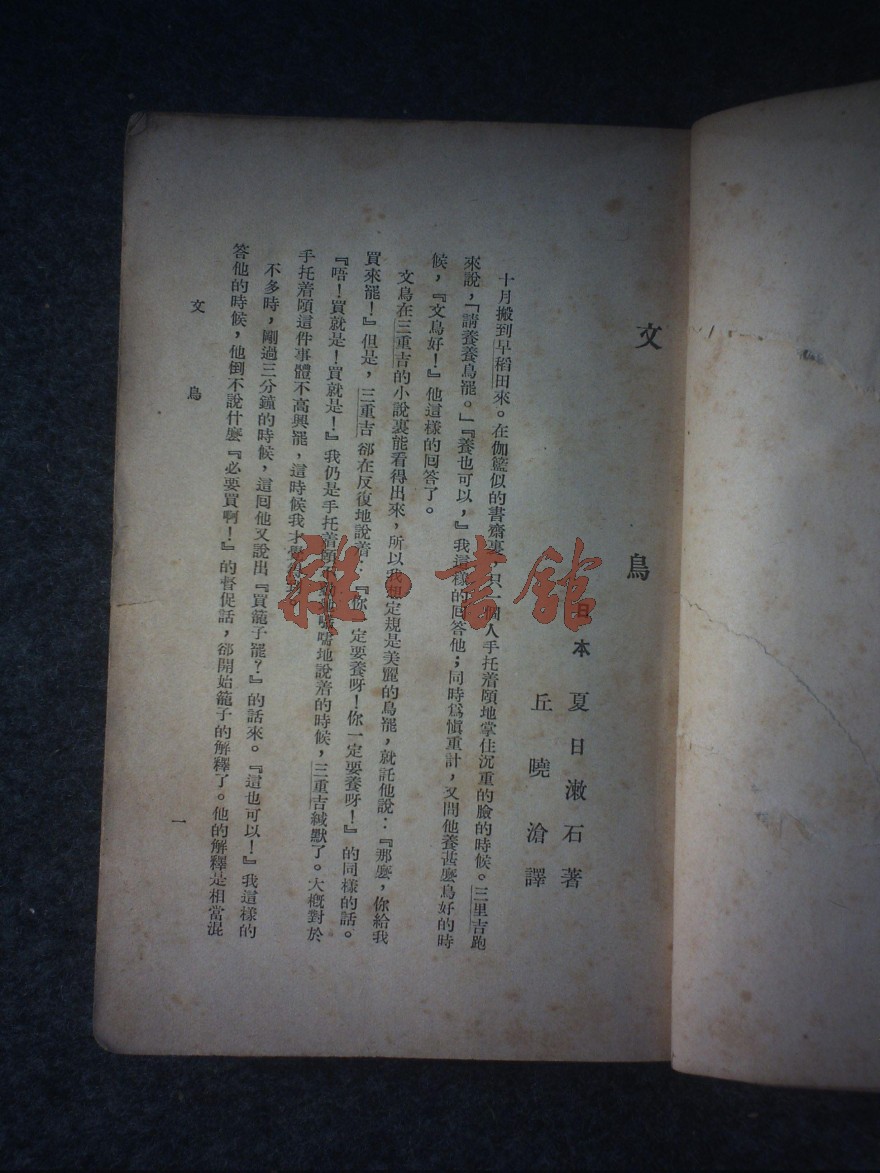 文鳥
日本 夏目漱石著
丘曉滄譯
十月搬到早稻田來。在伽籃似的書齋裏,只一個人手托着頤地掌住沉重的臉的時候。三里吉跑
來說,「請養養鳥罷。」『養也可以,』我這樣的回答他;同時爲愼重計,又問他養甚麼鳥好的時
候,『文鳥好!』他這樣的回答了。
文鳥在三重吉的小說裏能看得出來,所以我想定規是美麗的鳥罷,就託他說:『那麼,你給我
買來罷!』但是,三重吉卻在反復地說着:『你一定要養呀!你一定要養呀!』的同樣的話。
『唔!買就是!買就是!』我仍是手托着頤嚅地說着的時候,三重吉緘默了。大槪對於
手托着頤這件事體不高興罷,這時候我才
不多時,剛過三分鐘的時候,這囘他又說出『買籠子罷?』的話來。『這也可以!』我這樣的
答他的時候,他倒不說什麼『必要買啊!』的督促話,卻開始籠子的解釋了。他的解釋是相當混
文鳥
一
雜·書館